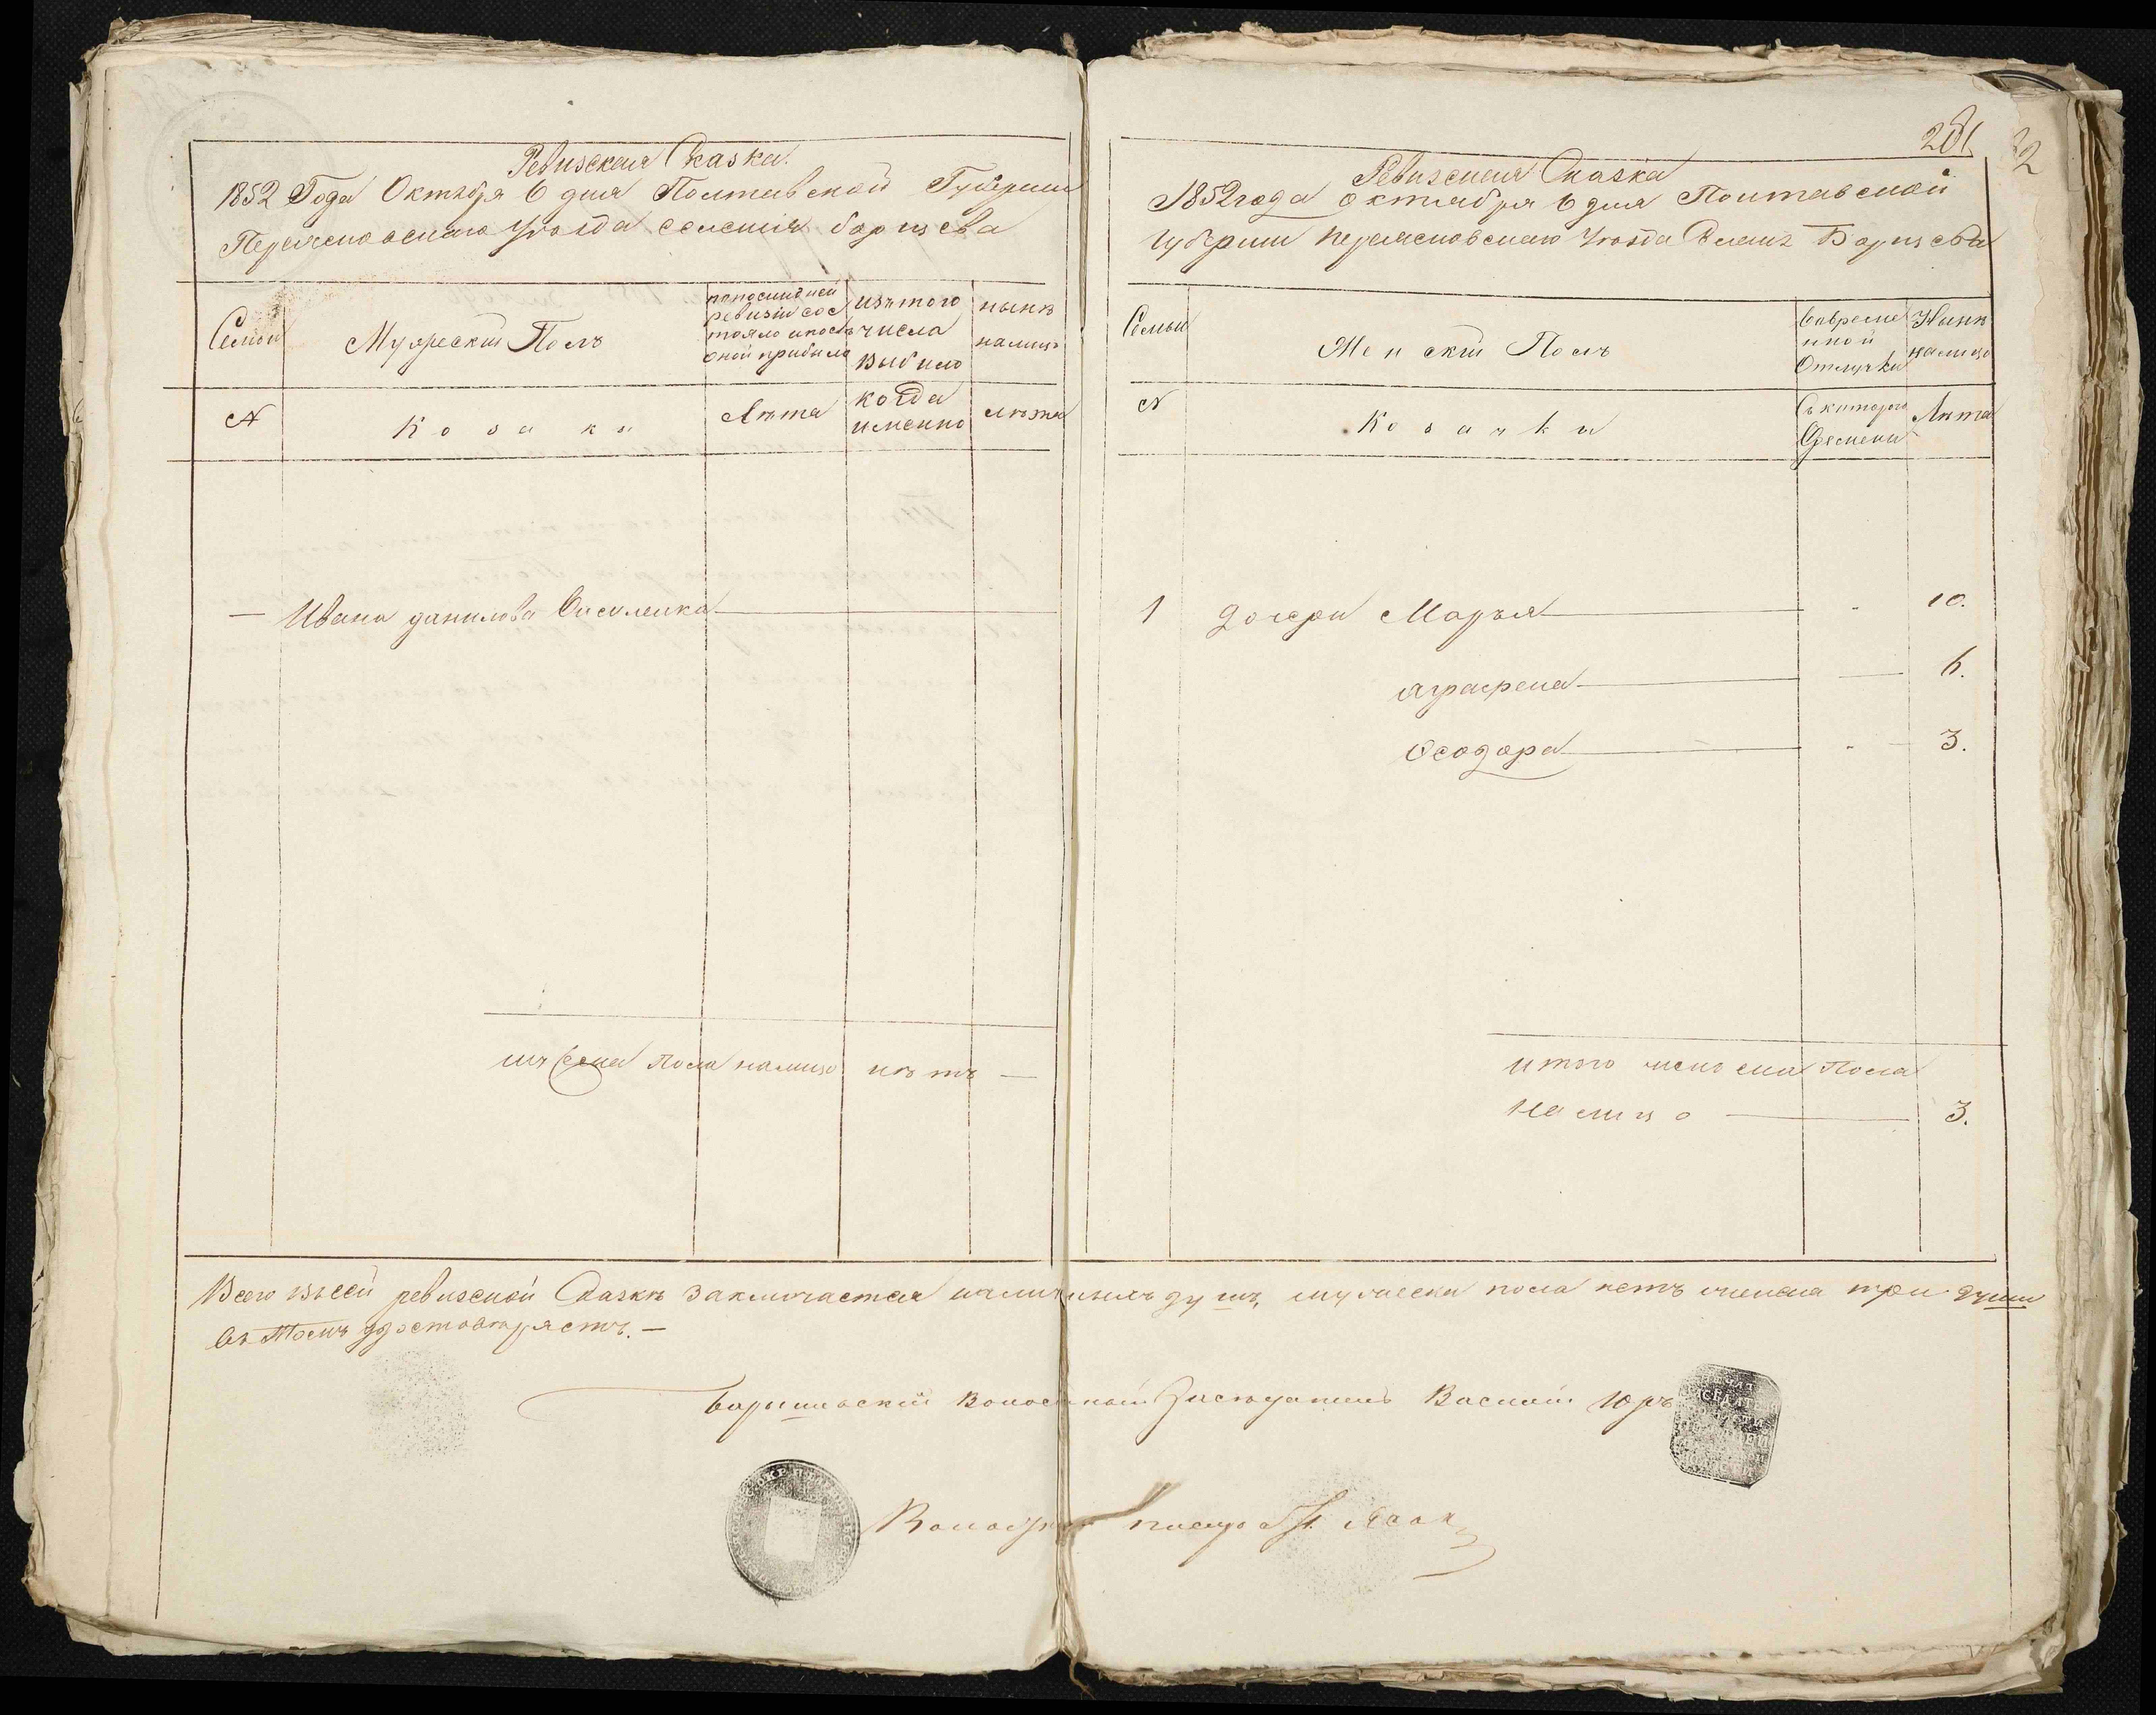 Ревизская Сказка.
1852 Года Октября 6 дня Полтавской Губернии
Переясловскаго Уѣзда селенія борисева
Семьи
Мужескій Полъ
попослѣдней ревизіи сос тояло ипослѣ оной прибыло
изътого числа выбыло
нынѣ налицо
№
Козаки
Лѣта
когда именно
лѣта
— Ивана данилова
муженска пола налицо нѣтъ —
281
32
Ревизская Сказка
1852 года октября 6 дня Полтавской
губерніи переясловскаго Уѣзда Селенія Борисева
Семьи
Женскій Полъ
Вовремен ной Отлучки
Нынѣ налицо
№
Козачки
Съ котораго Времени
Лѣта
1 дочери Марья 10.
аграфена 6.
Феодора 3.
итого женска пола
налицо 3.
Всего въсей ревизской Сказкѣ заключается наличныхъ душъ, мужеска пола нетъ женска три души
въ томъ удостовѣряетъ. —
Волостной Засѣдатель Василій Юръ
Волостной писарь